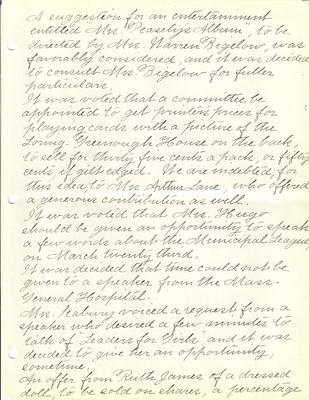 A suggestion for an entertainment
entitled Mrs. "Peasely's Album", to be
directed by Mrs. Warren Bigelow, was
favorably considered, and it was decided
to consult Mrs. Bigelow for fuller
particulars.
It was voted that a committee be
appointed to get printer's prices for
playing cards with a picture of the
Loring-Greenough House on the back,
to sell for thirty five cents a pack, or fifty
cents if gilt edged. We are indebted, for
this idea, to Mrs. Arthur Lane, who offered
a generous contribution as well.
It was voted that Mrs. Hugo
should be given an opportunity to speak
a few words about the Municipal League,
on March twenty third.
It was decided that time could not be
given to a speaker from the Mass.
General Hospital.
Mrs. Seabury voiced a request from a
speaker who desired a few minutes to
talk of "Leaders for Girls" and it was
decided to give her an opportunity,
sometime.
An offer from Ruth James of a dressed
doll, to be sold on shares, a percentage